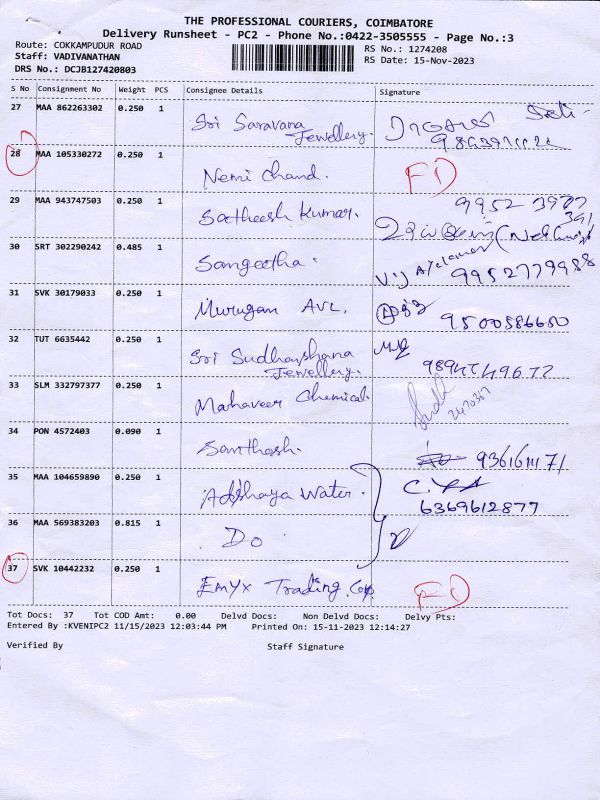 THE PROFESSIONAL COURIERS, COIMBATORE
Delivery Runsheet - PC2 - Phone No.:0422-3505555 - Page No.:3
Route: COKKAMPUDUR ROAD
RS No.: 1274208
Staff: VADIVANATHAN
RS Date: 15-Nov-2023
DRS No.: DCJB127420803
S No Consignment No Weight PCS Consignee Details Signature
27 MAA 862263302 0.250 1 Sri Saravana Jewellery.
28 MAA 105330272 0.250 1 Nemi Chand. FD
29 MAA 943747503 0.250 1 Satheesh Kumar. 99523977
391
30 SRT 302290242 0.485 1 Sangeetha. 9952779988
31 SVK 30179033 0.250 1 Murugan AVL. 9500586650
32 TUT 6635442 0.250 1 Sri Sudharshana Jewellery.
33 SLM 332797377 0.250 1 Mahaveer Chemical.
34 PON 4572403 0.090 1 Santhosh.
35 MAA 104659890 0.250 1 Water. 6369612877
36 MAA 569383203 0.815 1 Do
37 SVK 10442232 0.250 1 Emyx Trading. Corp. FD
Tot Docs: 37 Tot COD Amt: 0.00 Delvd Docs: Non Delvd Docs: Delvy Pts:
Entered By :KVENIPC2 11/15/2023 12:03:44 PM Printed On: 15-11-2023 12:14:27
Verified By Staff Signature